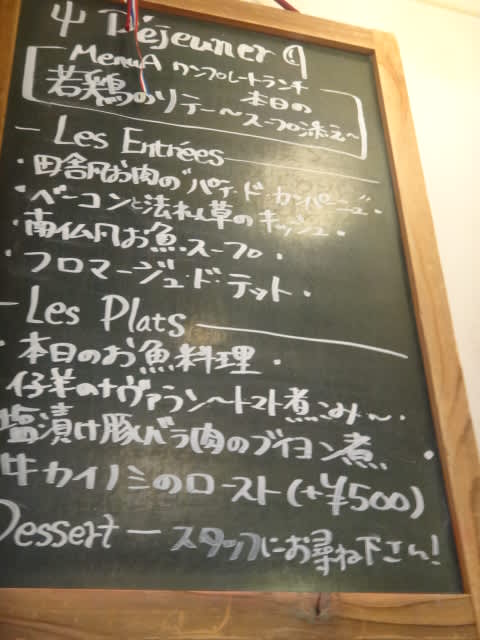 Déjeuner
MenuA ワンプレートランチ
若鶏のソテー 本日の
〜スープ添え〜
Les Entrées
・田舎風お肉のパテ・ド・カンパーニュ・
・ベーコンと法れん草のキッシュ・
・南仏風お魚スープ・
・フロマージュ・ド・テット・
Les Plats
・本日のお魚料理・
仔羊のナヴァラン〜トマト煮こみ〜・
塩漬け豚バラ肉のブイヨン煮・
牛カイノミのロースト(+¥500)
Dessert ー スタッフにお尋ね下さい!